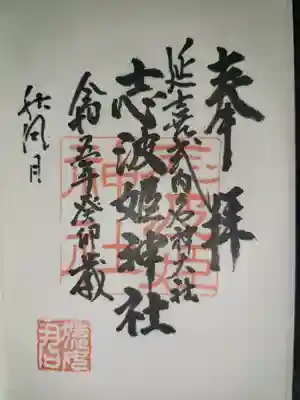 奉拝
延喜式内名神大社
志波姫神社
令和五年癸卯歳
秋風月